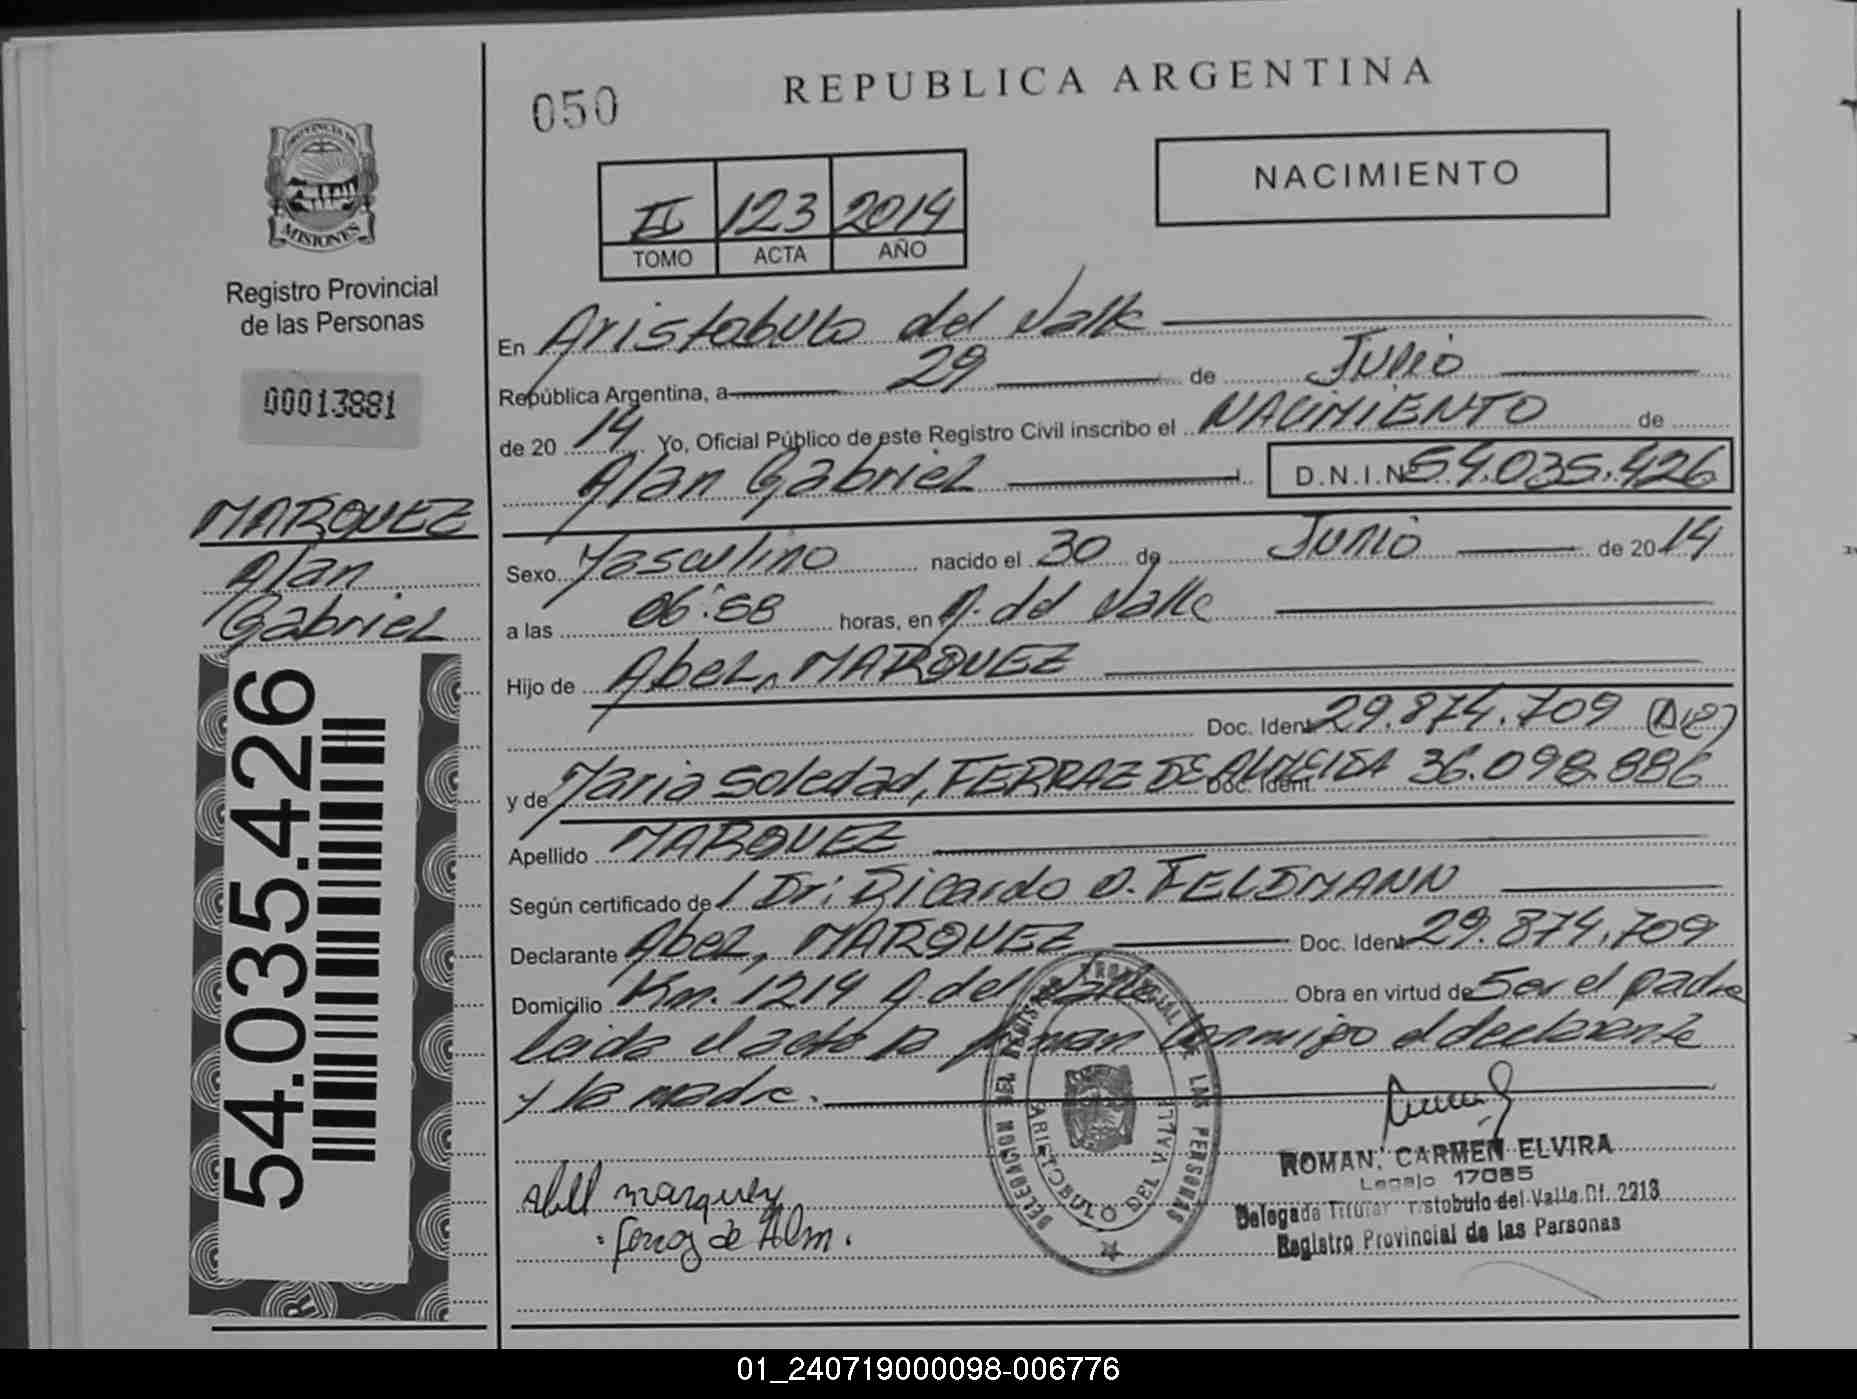 050
REPUBLICA ARGENTINA
NACIMIENTO
II 123 2014
TOMO ACTA AÑO
PROVINCIA DE
MISIONES
Registro Provincial
de las Personas
00013881
MARQUEZ
Alan
Gabriel
54.035.426
En Aristobulo del Valle
República Argentina, a 29 de Junio
de 20 14 Yo, Oficial Público de este Registro Civil inscribo el NACIMIENTO de
Alan Gabriel D.N.I.Nº 54.035.426
Sexo Masculino nacido el 30 de Junio de 2014
a las 06:58 horas, en A. del Valle
Hijo de Abel, MARQUEZ
Doc. Ident. 29.874.709
y de Maria Soledad, FERRAZ DE ALMEIDA Doc. Ident. 36.098.886
Apellido MARQUEZ
Según certificado de Dr: Ricardo O. FELDMANN
Declarante Abel, MARQUEZ Doc. Ident 29.874.709
Domicilio Km. 1214 A. del Valle Obra en virtud de Ser el padre
Leida el acta la firman conmigo el declarante
y la madre.
DELEGACION DEL REGISTRO PROVINCIAL DE LAS PERSONAS
ARISTOBULO DEL VALLE
Abel marquez
Ferraz de Alm.
ROMAN, CARMEN ELVIRA
Legajo 17085
Delegada Titular Aristobulo del Valle Of. 2213
Registro Provincial de las Personas
01_240719000098-006776